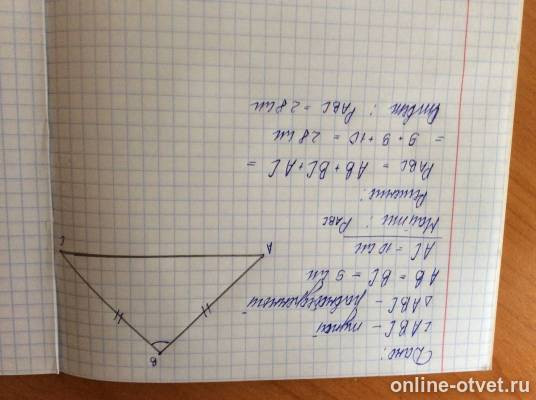 Дано:
∠ABC – тупой
△ABC – равнобедренный
AB = BC = 9 см
AC = 10 см
Найти: P_ABC
Решение:
P_ABC = AB + BC + AC =
= 9 + 9 + 10 = 28 см
Ответ: P_ABC = 28 см
B
A
C
online-otvet.ru